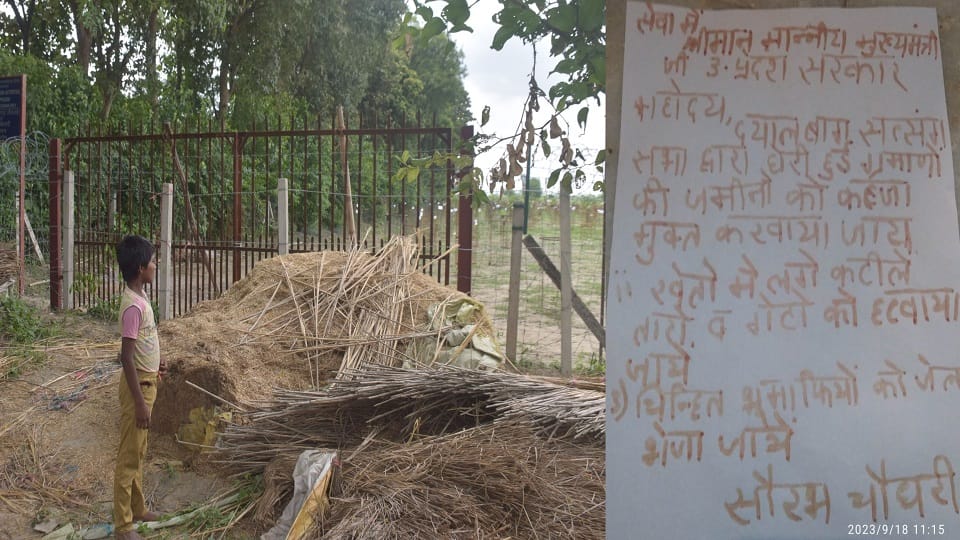 सेवा में
श्रीमान मान्नीय मुख्यमंत्री
जी उ. प्रदेश सरकार
महोदय,
दयाल बाग सत्संग
सभा द्वारा घेरी हुई ग्रमाणो
की जमीनो को कब्जा
मुक्त करवाया जाय
खेतो मे लगे कटीले
तारो व गेटो को हटवाया
जाये
चिन्हित भूमाफियों को जेल
भेजा जाये
सौरभ चौधरी
2023/9/18 11:15